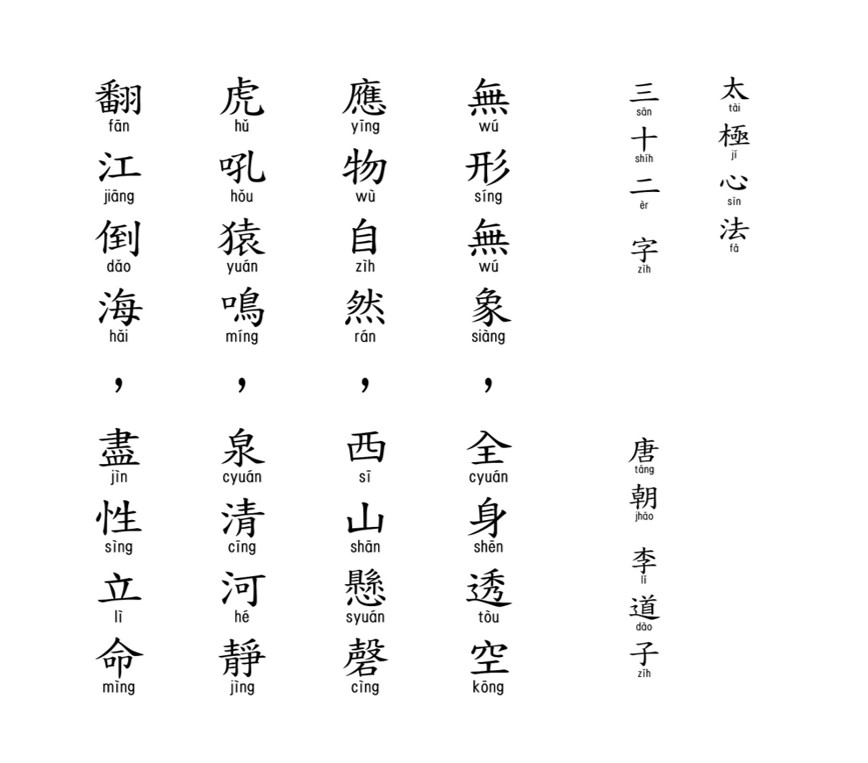 太極心法
tài jí sīn fǎ
三十二字
sān shíh èr zìh
唐朝 李道子
táng jhāo lǐ dào zǐh
無形無象，全身透空
wú síng wú siàng cyuán shēn tòu kōng
應物自然，西山懸磬
yīng wù zìh rán sī shān syuán cìng
虎吼猿鳴，泉清河靜
hǔ hǒu yuán míng cyuán cīng hé jìng
翻江倒海，盡性立命
fān jiāng dǎo hǎi jìn sìng lì mìng